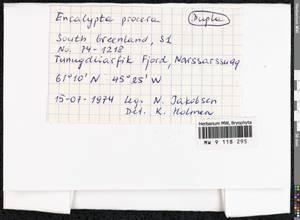 Encalypta procera
Dupla
South Greenland, S1
No. 74-1218
Tunugdliarfik Fjord, Narssarssuaq
61°10' N 45°25' W
15-07-1974 leg. N. Jakobsen
Det. K. Holmen
Herbarium MW, Bryophyta
MW 9 118 295